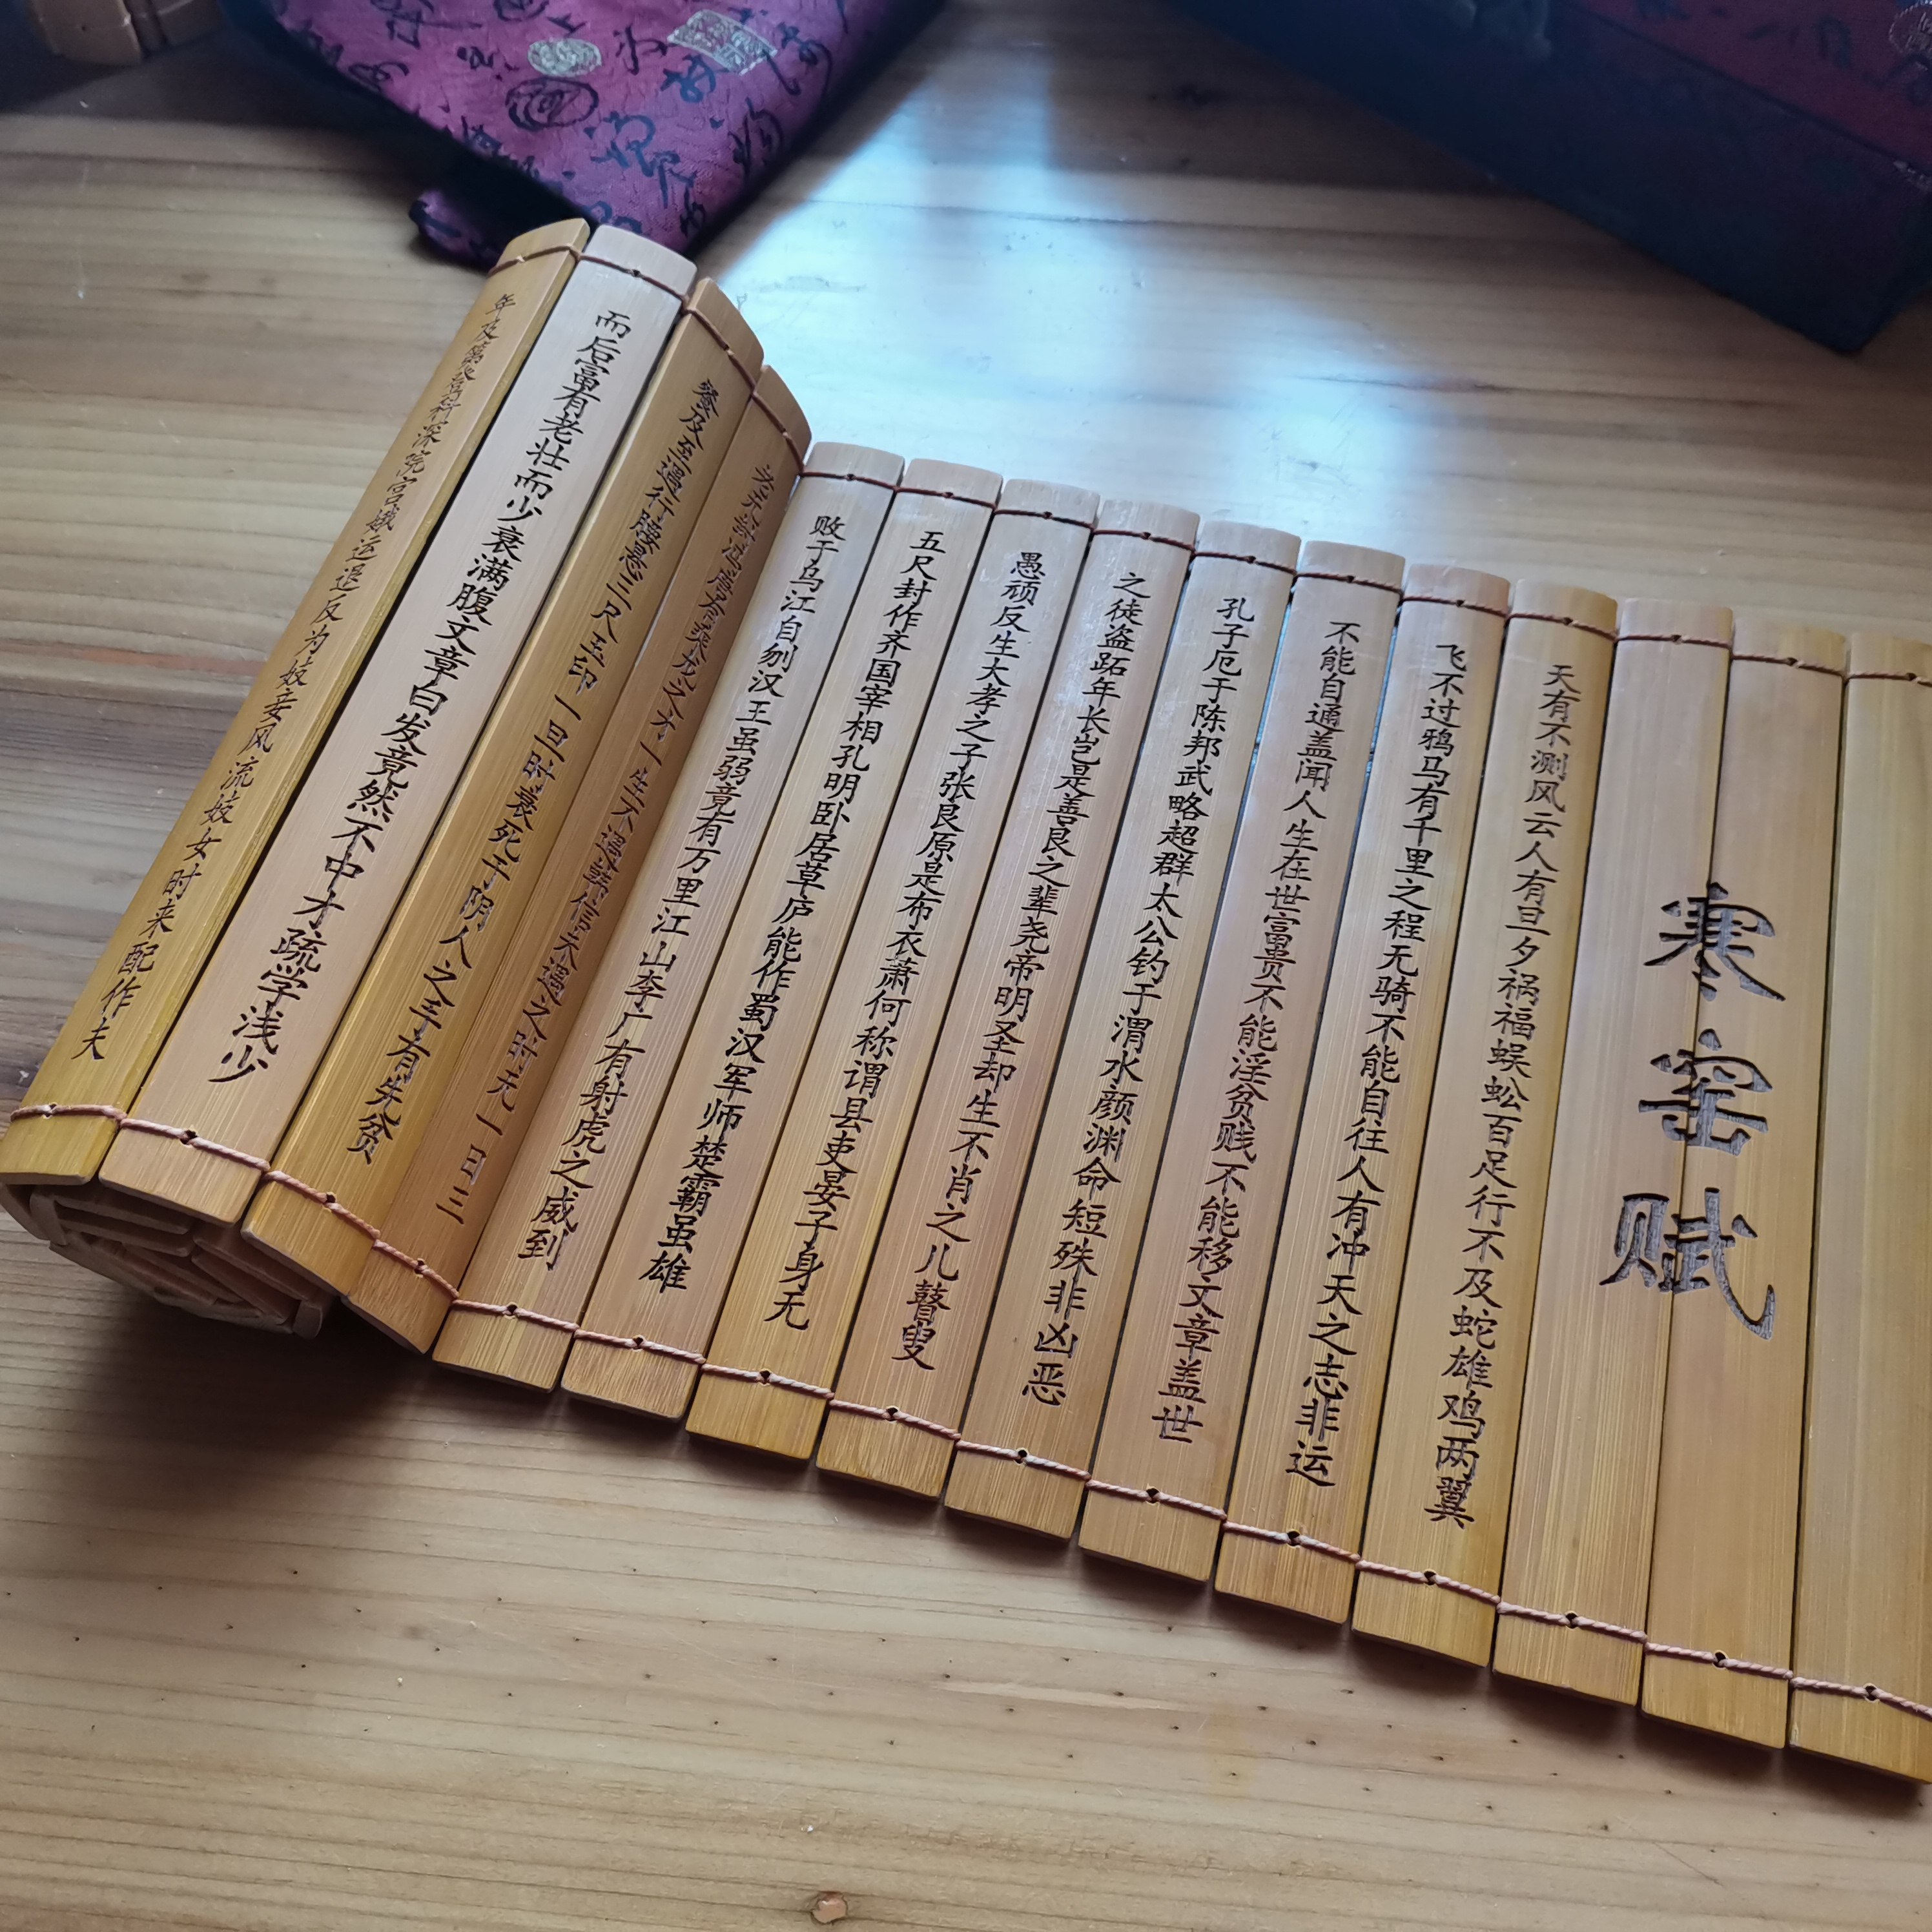 寒窑赋
天有不测风云人有旦夕祸福蜈蚣百足行不及蛇雄鸡两翼
飞不过鸦马有千里之程无骑不能自往人有冲天之志非运
不能自通盖闻人生在世富贵不能淫贫贱不能移文章盖世
孔子厄于陈邦武略超群太公钓于渭水颜渊命短殊非凶恶
之徒盗跖年长岂是善良之辈尧帝明圣却生不肖之儿瞽叟
愚顽反生大孝之子张良原是布衣萧何称谓县吏晏子身无
五尺封作齐国宰相孔明卧居草庐能作蜀汉军师楚霸虽雄
败于乌江自刎汉王虽弱竟有万里江山李广有射虎之威到
老无封冯唐有乘龙之才一生不遇韩信未遇之时无一日三
餐及至遇行腰悬三尺玉印一旦时衰死于阴人之手有先贫
而后富有老壮而少衰满腹文章白发竟然不中才疏学浅少
年及第登科深院宫娥运退反为妓妾风流妓女时来配作夫